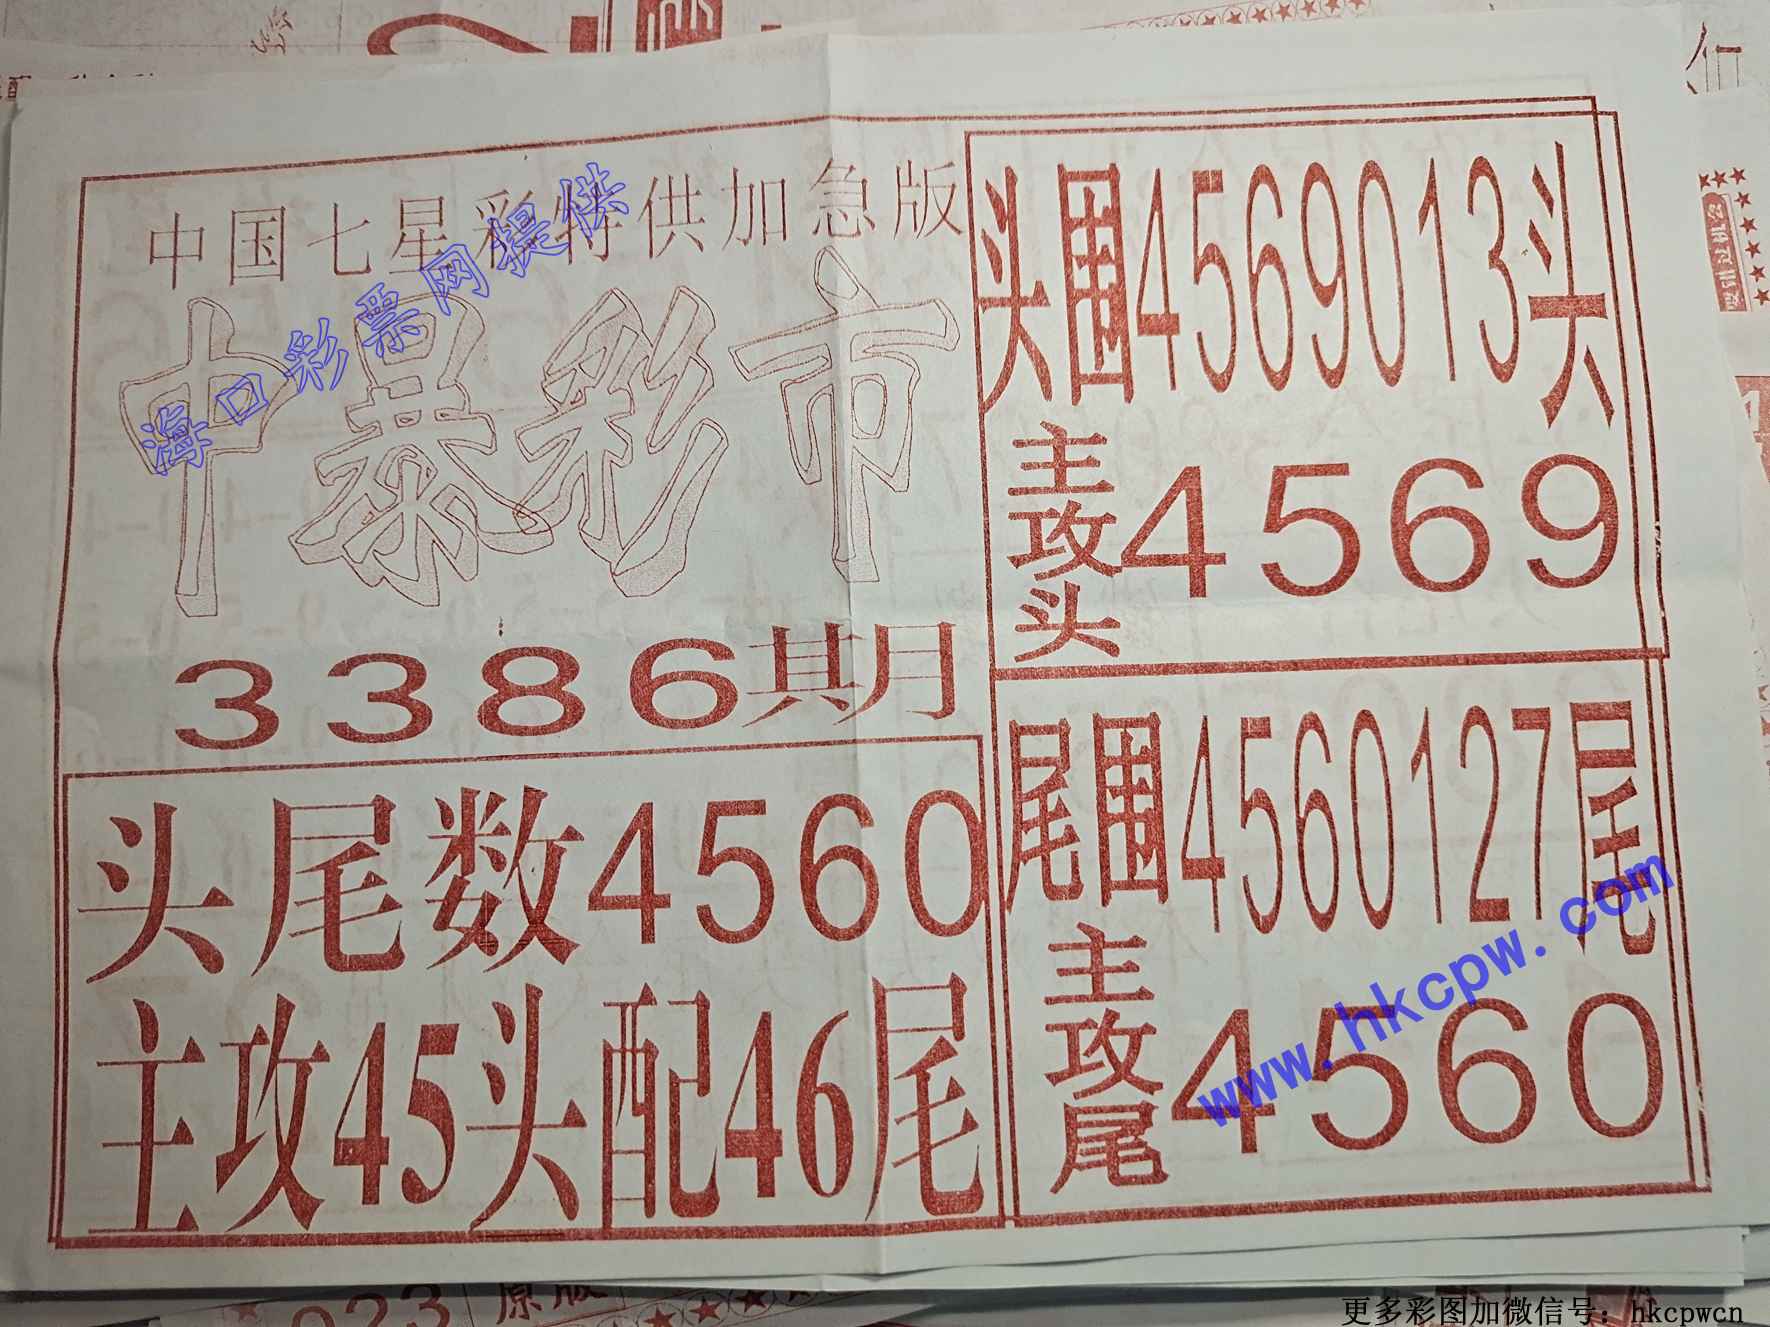 中国七星彩特供加急版
中暴彩市
3386期
头尾数4560
主攻45头配46尾
头围4569013头
主攻头4569
尾围4560127尾
主攻尾4560
海口彩票网提供
www.hkcpw.com
原版
更多彩图加微信号：hkcpwcn